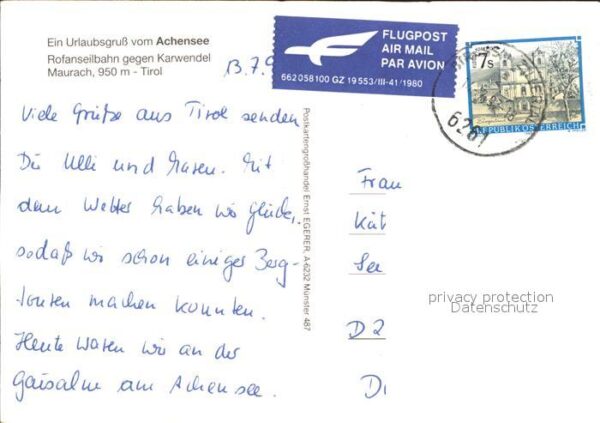 Ein Urlaubsgruß vom Achensee
Rofanseilbahn gegen Karwendel
Maurach, 950 m - Tirol
13.7.9
FLUGPOST
AIR MAIL
PAR AVION
662 058 100 GZ 19 553/III-41/1980
7s
REPUBLIK ÖSTERREICH
6261
Viele Grüße aus Tirol senden
Dir Ulli und Maren. Mit
dem Wetter haben wir Glück,
sodaß wir schon einige Berg-
touren machen konnten.
Heute waren wir an der
Gaisalm am Achensee.
Postkartengroßhandel Ernst EGERER, A-6232 Münster 487
Frau
Kät
See
D 2
Di
privacy protection
Datenschutz